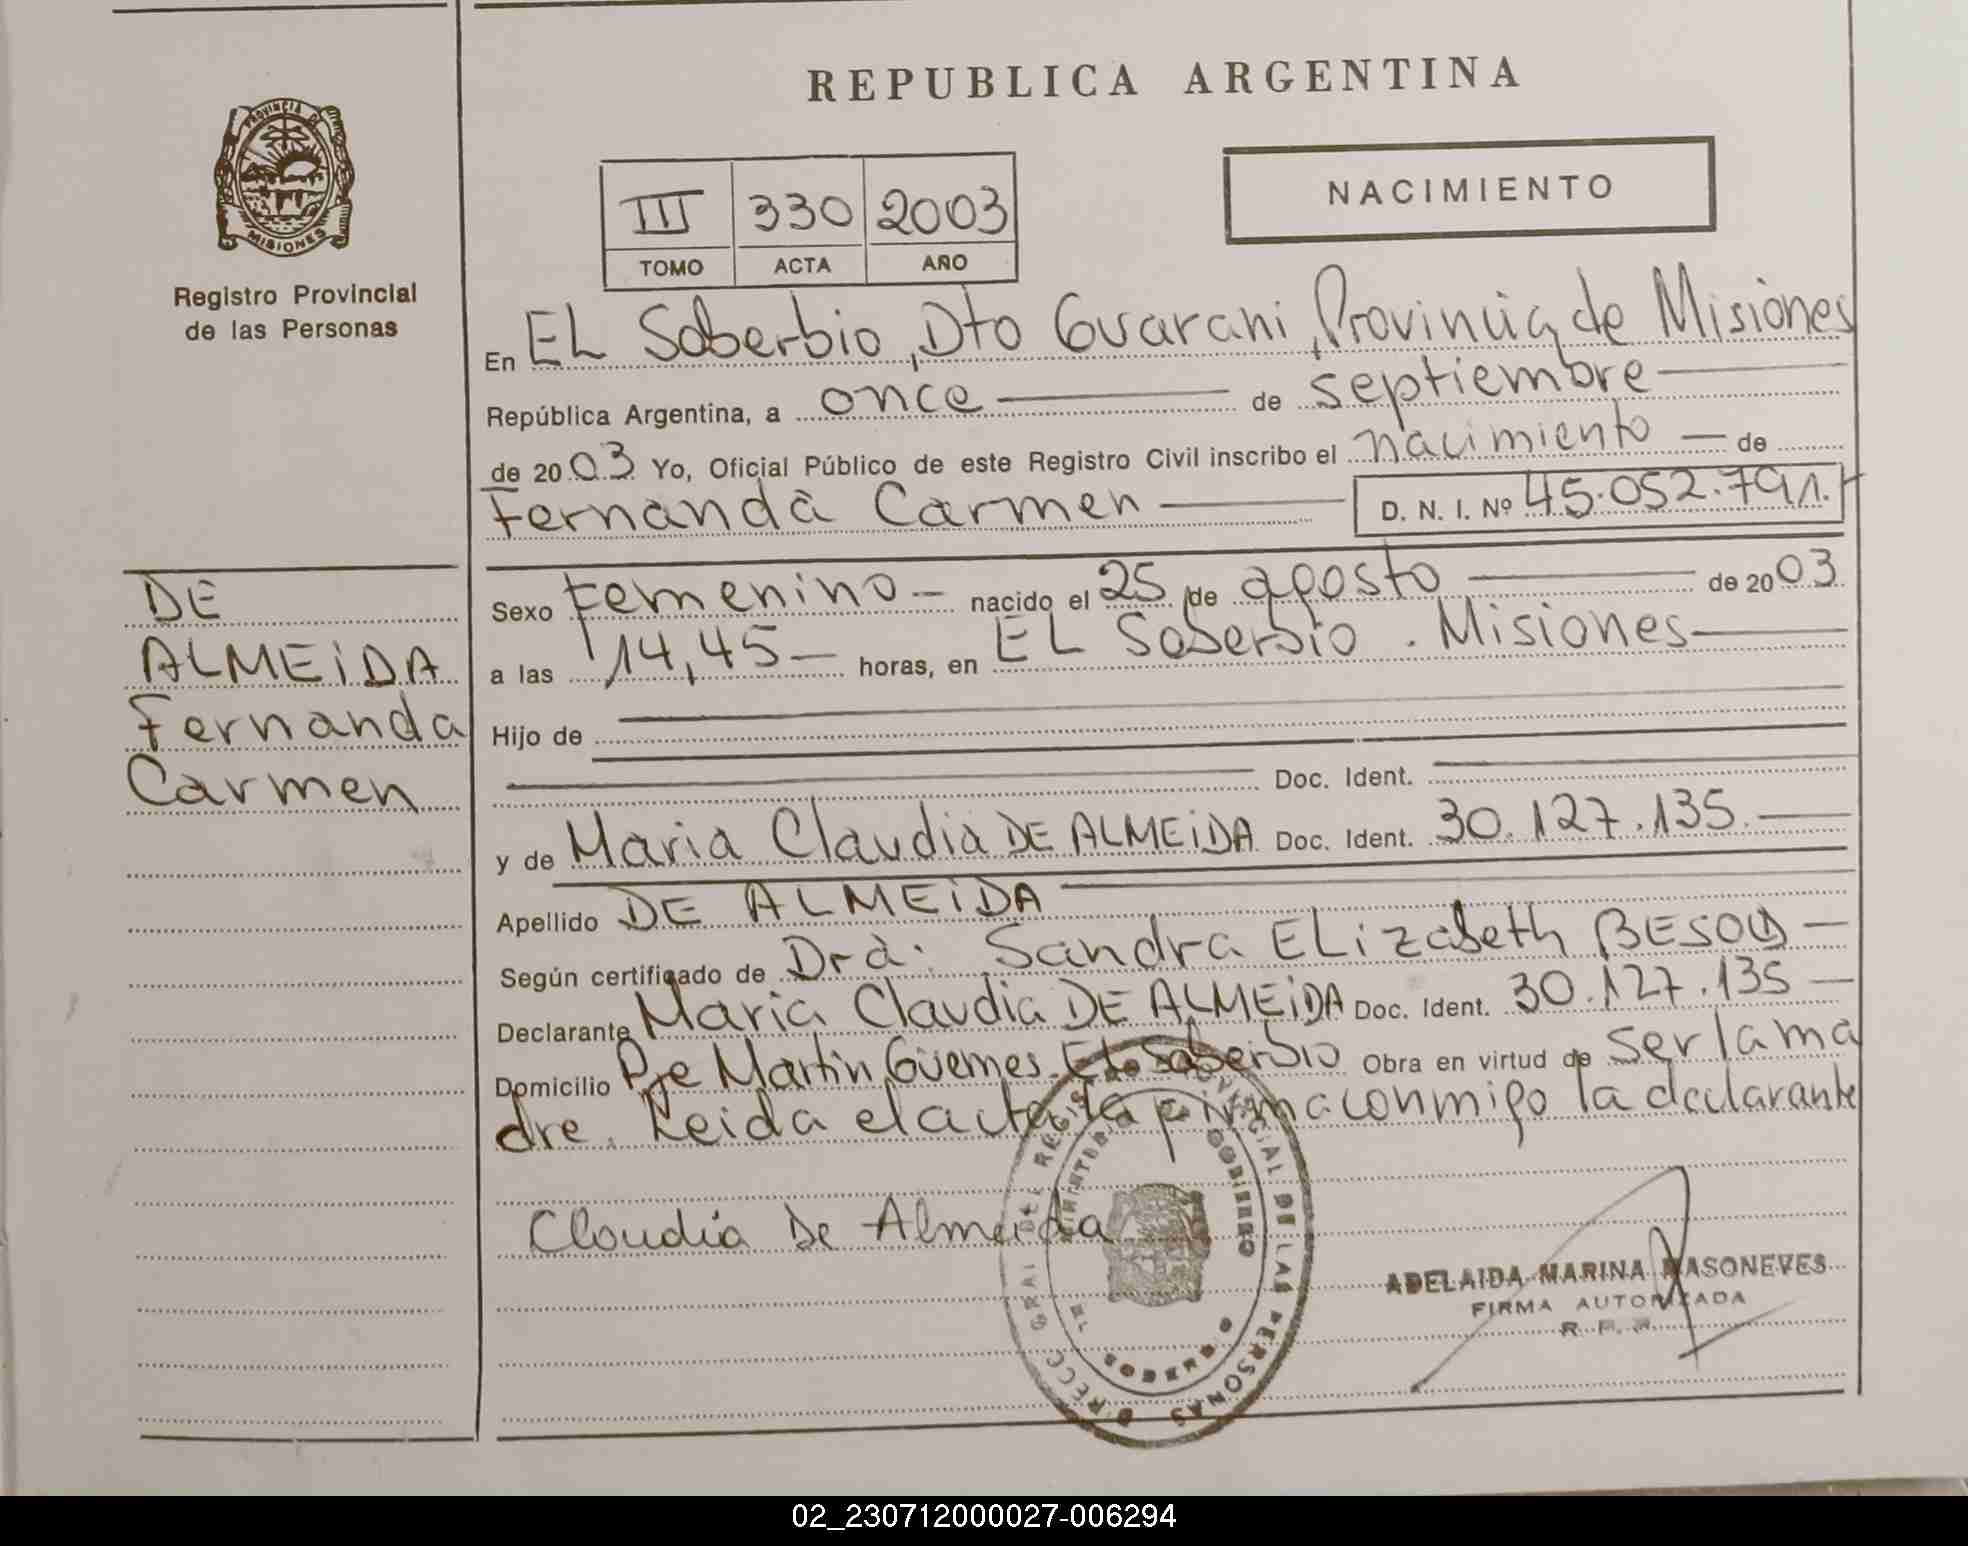 REPUBLICA ARGENTINA
PROVINCIA DE
MISIONES
Registro Provincial
de las Personas
NACIMIENTO
III 330 2003
TOMO ACTA AÑO
En EL Soberbio, Dto Guarani, Provincia de Misiones
República Argentina, a once de septiembre
de 2003 Yo, Oficial Público de este Registro Civil inscribo el nacimiento de
Fernanda Carmen D. N. I. Nº 45.052.791.
DE
ALMEIDA
Fernanda
Carmen
Sexo femenino nacido el 25 de agosto de 2003
a las 14,45 horas, en EL Soberbio. Misiones
Hijo de
Doc. Ident.
y de Maria Claudia DE ALMEIDA Doc. Ident. 30.127.135.
Apellido DE ALMEIDA
Según certificado de Dra. Sandra ELizabeth
Declarante Maria Claudia DE ALMEIDA Doc. Ident. 30.127.135
Domicilio Martin Güemes. El Soberbio Obra en virtud de ser la ma
dre. Leida el acta la firma conmigo la declarante
Claudia De Almeida
DIRECC GRAL DEL REGISTRO PROVINCIAL DE LAS PERSONAS
MINISTERIO GOBIERNO
ADELAIDA MARINA MASONEVES
FIRMA AUTORIZADA
R. P. P.
02_230712000027-006294